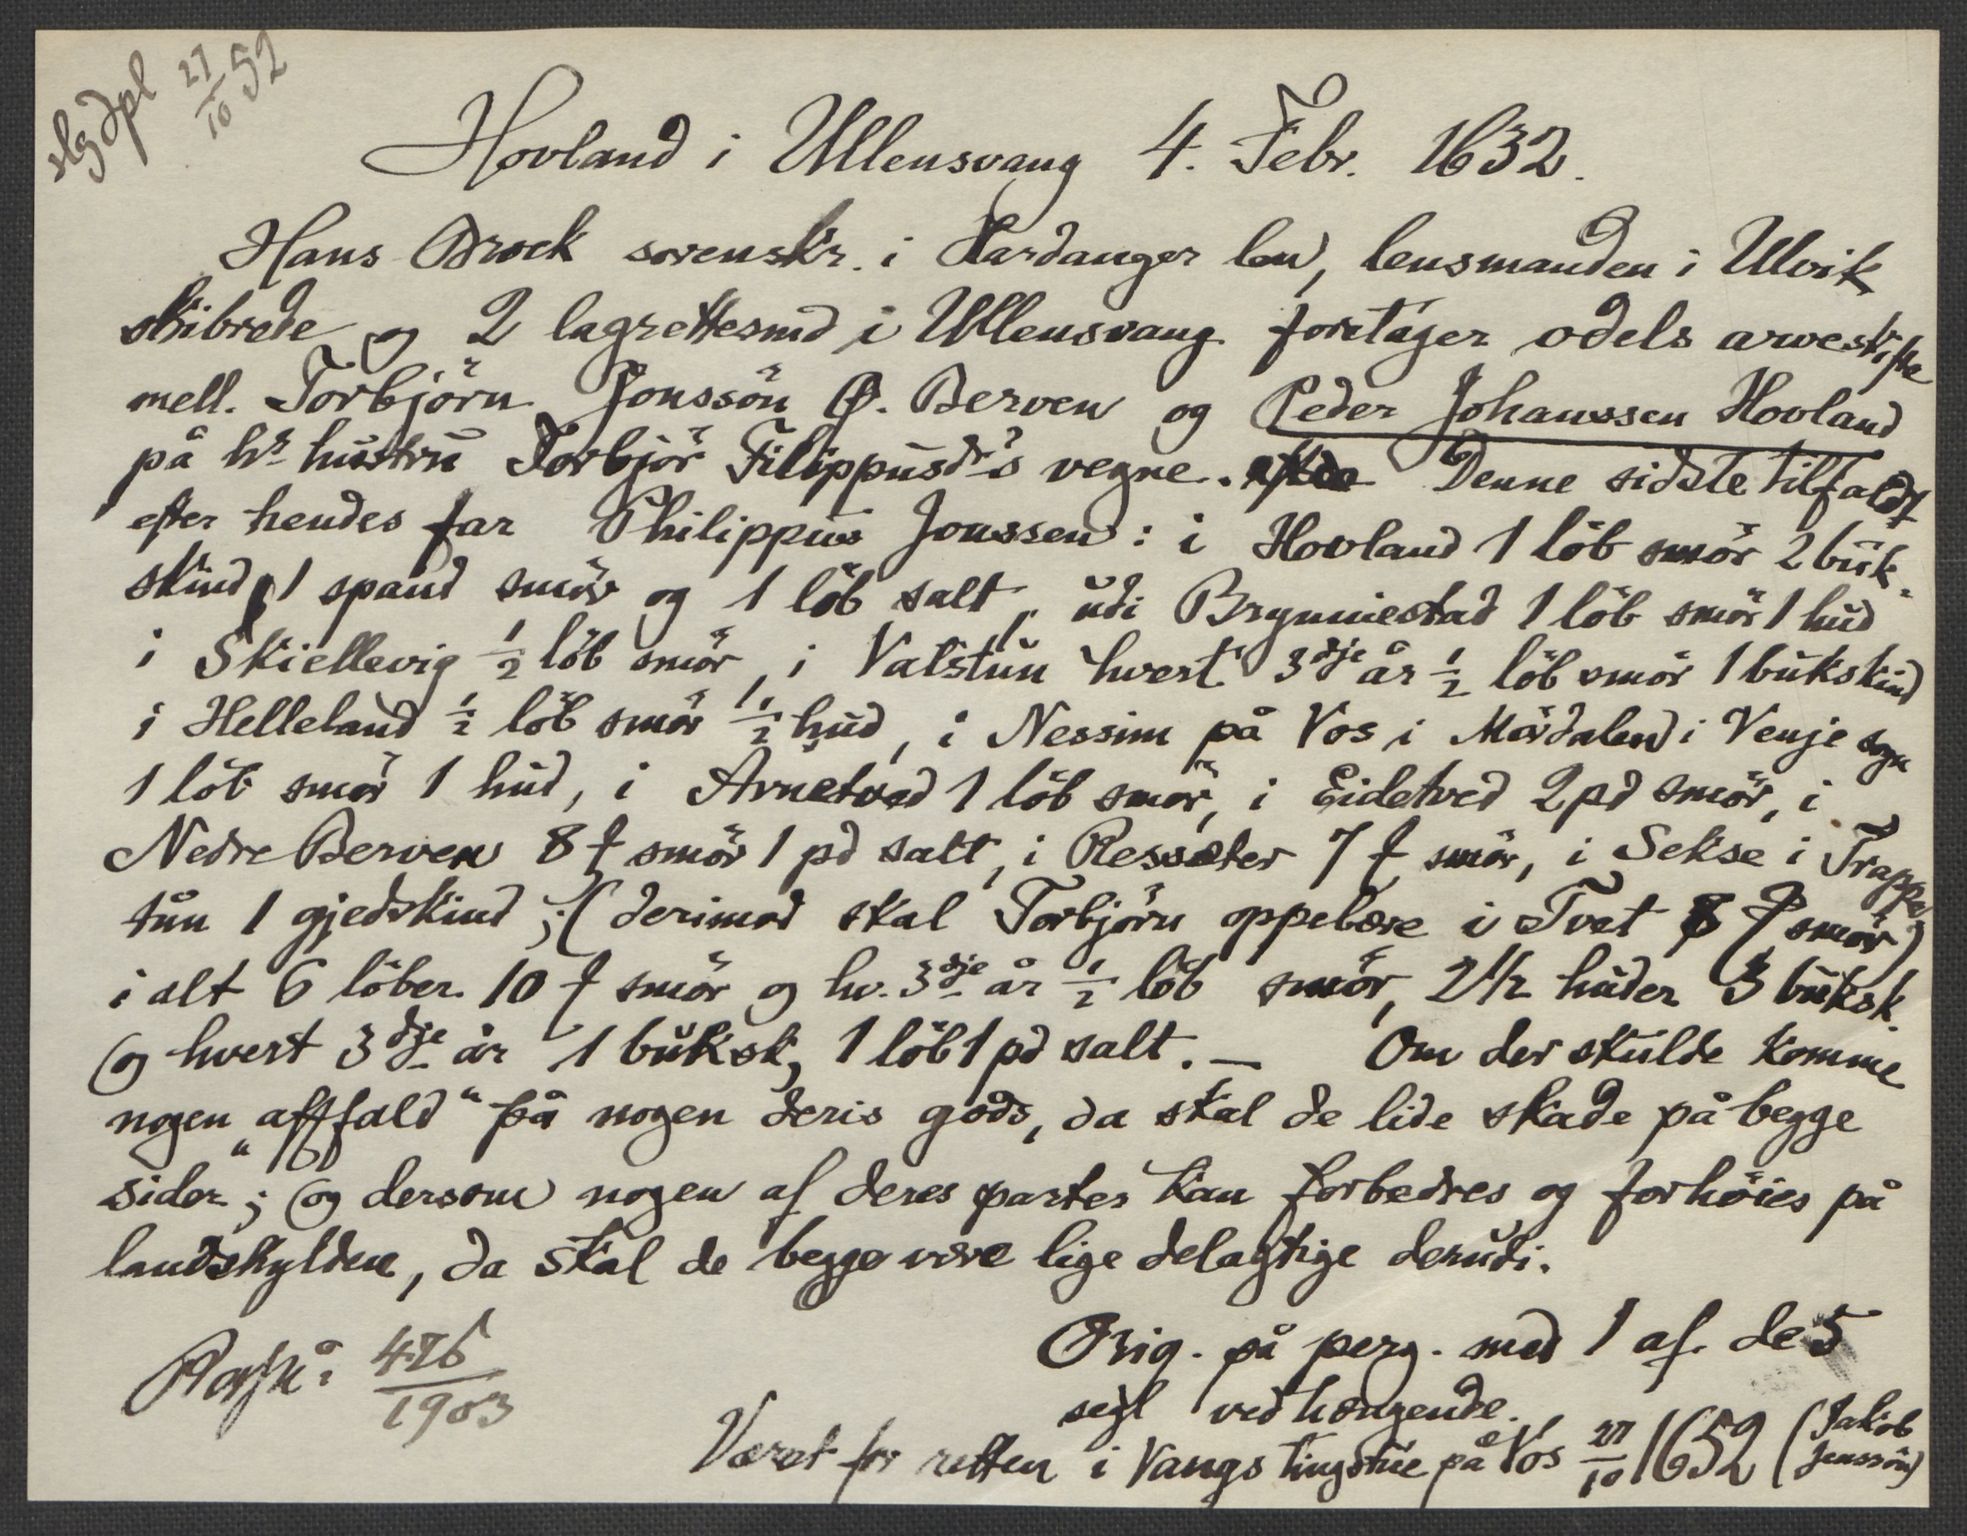 slg dpl 27/10 52
Hovland i Ullensvang 4. Febr. 1632.
Hans Brock sorenskr. i Hardanger len, lensmanden i Ulvik
skibrede og 2 lagrettesmd i Ullensvang foretager odels arveskifte
mell. Torbjörn Jonssön Ø. Berven og Peder Johanssen Hovland
på hs hustru Torbjör Filippusdrs vegne. Denne sidste tilfaldt
efter hendes far Philippus Jonssen: i Hovland 1 löb smör 2 buk-
skind, 1 spand smör og 1 löb salt, udi Brynniestad 1 löb smör 1 hud
i Skiellevig ½ löb smör, i Vatstun hvert 3dje år ½ löb smör 1 bukskind
i Helleland ½ löb smör ½ hud, i Nessim på Vos i Mördalen i Venje sogn
1 löb smör 1 hud, i Arnetved 1 löb smör, i Eidetved 2 pd smör, i
Nedre Berven 8 ₰ smör 1 pd salt, i Ressæter 7 ₰ smör, i Sekse i Trappe
tun 1 gjedskind; (derimod skal Torbjörn oppebære i Tvet 8 ₰ smör)
i alt 6 löber 10 ₰ smör og hv. 3dje år ½ löb smör, 2½ huder 3 buksk.
og hvert 3dje år 1 buksk, 1 löb 1 pd salt. — Om der skulde komme
nogen „affald" på nogen deris gods, da skal de lide skade på begge
sider; og dersom nogen af deres parter kan forbedres og forhöies på
landskylden, da skal de begge være lige delagtige derudi.
Orig. på perg. med 1 af de 5
segl vedhængende.
426/1903
Været for retten i Vangs tingstue på Vos 27/10 1652 (Jakob
Jenssön)